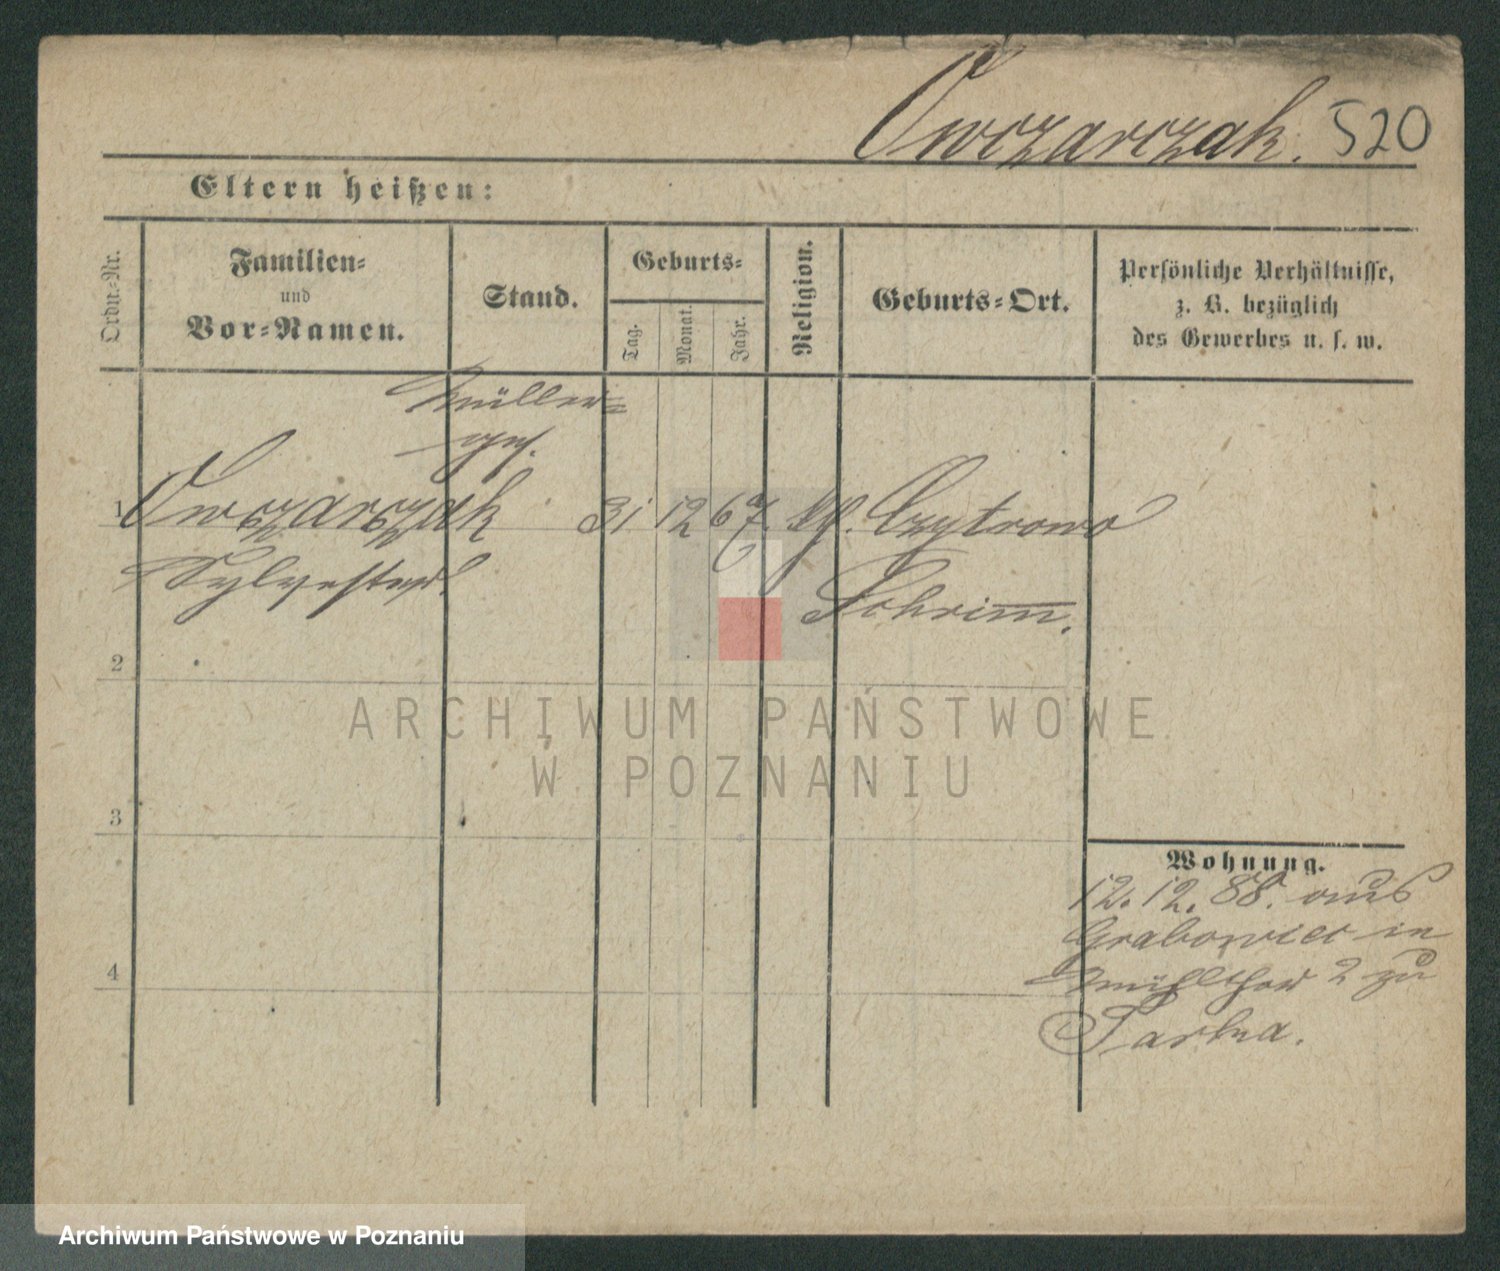 Owczarczak. 520
Eltern heißen:
Ordn.-Nr.
Familien-
und
Vor-Namen.
Stand.
Geburts-
Tag.
Monat.
Jahr.
Religion.
Geburts-Ort.
Persönliche Verhältnisse,
z. B. bezüglich
des Gewerbes u. s. w.
Müller-
ges.
1 Owczarczak 31 12 67. Czytrowo
Sylvester
Schrimm.
2
3
4
Wohnung.
12. 12. 88. aus
Grabowiec in
Mühlthor 2 zu
Sarbea.
ARCHIWUM PAŃSTWOWE
W POZNANIU
Archiwum Państwowe w Poznaniu